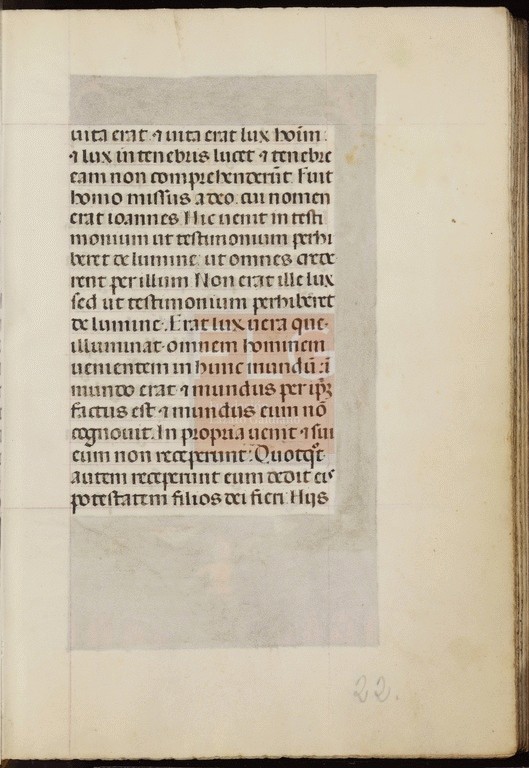 uita erat ⁊ uita erat lux hoim̄:
⁊ lux in tenebris lucet ⁊ tenebre
eam non comprehenderūt Fuit
homo missus a deo. cui nomen
erat ioannes Hic uenit in testi
monium ut testimonium perhi
beret de lumine: ut omnes crede
rent per illum Non erat ille lux
sed ut testimonium perhiberet
de lumine. Erat lux uera que.
illuminat omnem hominem
uenientem in hunc mundū: ī
mundo erat ⁊ mundus per ip̄ꝫ
factus est ⁊ mundus eum nō
cognouit. In propria uenit ⁊ sui
eum non receperunt: Quotq̄t
autem receperunt eum dedit eis
potestatem filios dei fieri Hijs
22.